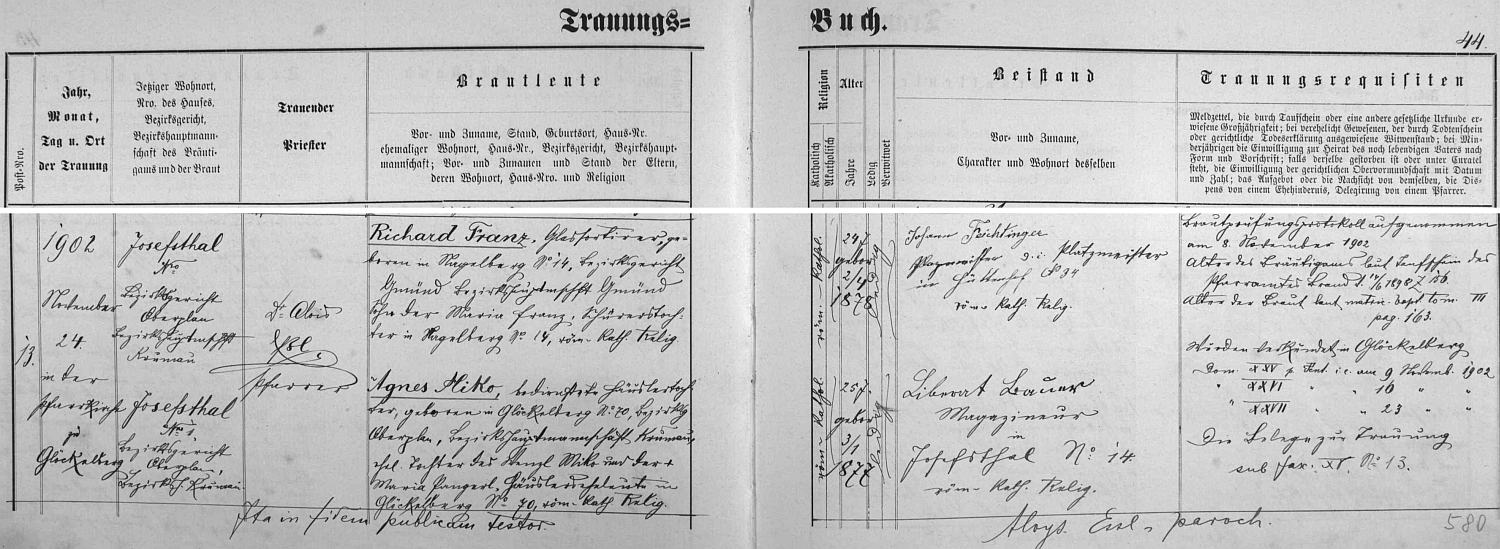 Trauungs= Buch.
44.
Post-Nro.
Jahr,
Monat,
Tag u. Ort
der Trauung
Jetziger Wohnort,
Nro. des Hauses,
Bezirksgericht,
Bezirkshauptmann-
schaft des Bräuti-
gams und der Braut
Trauender
Priester
Brautleute
Vor- und Zuname, Stand, Geburtsort, Haus-Nr.
ehemaliger Wohnort, Haus-Nr., Bezirksgericht, Bezirkshaupt-
mannschaft; Vor- und Zunamen und Stand der Eltern,
deren Wohnort, Haus-Nro. und Religion
Religion
Katholisch
Akatholisch
Alter
Jahre
Ledig
Verwitwet
Beistand
Vor- und Zuname,
Charakter und Wohnort desselben
Trauungsrequisiten
Meldzettel, die durch Taufschein oder eine andere gesetzliche Urkunde er-
wiesene Großjährigkeit; bei verehelicht Gewesenen, der durch Todtenschein
oder gerichtliche Todeserklärung ausgewiesene Witwenstand; bei Min-
derjährigen die Einwilligung zur Heirat des noch lebendigen Vaters nach
Form und Vorschrift; falls derselbe gestorben ist oder unter Curatel
steht, die Einwilligung der gerichtlichen Obervormundschaft mit Datum
und Zahl; das Aufgebot oder die Nachsicht von demselben, die Dis-
pens von einem Ehehindernis, Delegirung von einem Pfarrer.
13.
1902
November
24.
in der
Pfarrkirche
zu
Glöckelberg
Josefsthal
Nro
Bezirksgericht
Oberplan
Bezirkshauptmschft
Krumau
Josefsthal
Nro 1.
Bezirksgericht
Oberplan,
Bezirksh. Krumau
Dr Alois
Essl
Pfarrer
Richard Franz, Glassortirer, ge-
boren in Nagelberg No 14, Bezirksgericht
Gmünd Bezirkshauptmschft Gmünd
Sohn der Maria Franz, Schürerstoch-
ter in Nagelberg No 14, röm. kath. Relig.
Agnes Miko, bedienstete Häuslertoch-
ter, geboren in Glöckelberg No 70, Bezirksg
Oberplan, Bezirkshauptmannschaft Krumau,
ehel. Tochter des Wenzl Miko und der +
Maria Pangerl, Häuslerseheleute in
Glöckelberg No 70, röm. kath Relig.
röm. kathl.
24 J
gebor
2/4
1878
ledig
röm. kathl.
25 J
gebor
3/1
1877
ledig
Johann Feichtinger
Platzmeister
in Hüttenhof No 34
röm. kath. Relig.
Liberat Bauer
Magazineur
in
Josefsthal No 14.
röm. kath. Relig.
Brautprüfungsprotokoll aufgenommen
am 8. November 1902
Alter des Bräutigams laut Taufschein des
Pfarramtes Brand d. 14/6 1898 Z 156.
Alter der Braut laut matric. bapt. tom. III
pag. 163.
Wurden verkündet in Glöckelberg
Dom. XXV p. Pent. i.e. am 9 Novemb. 1902
" XXVI " " 16 " "
" XXVII " " 23 " "
Die Belege zur Trauung
sub fasc. XV. No 13.
Ita in fidem publicam testor
Aloys. Essl, paroch.
580